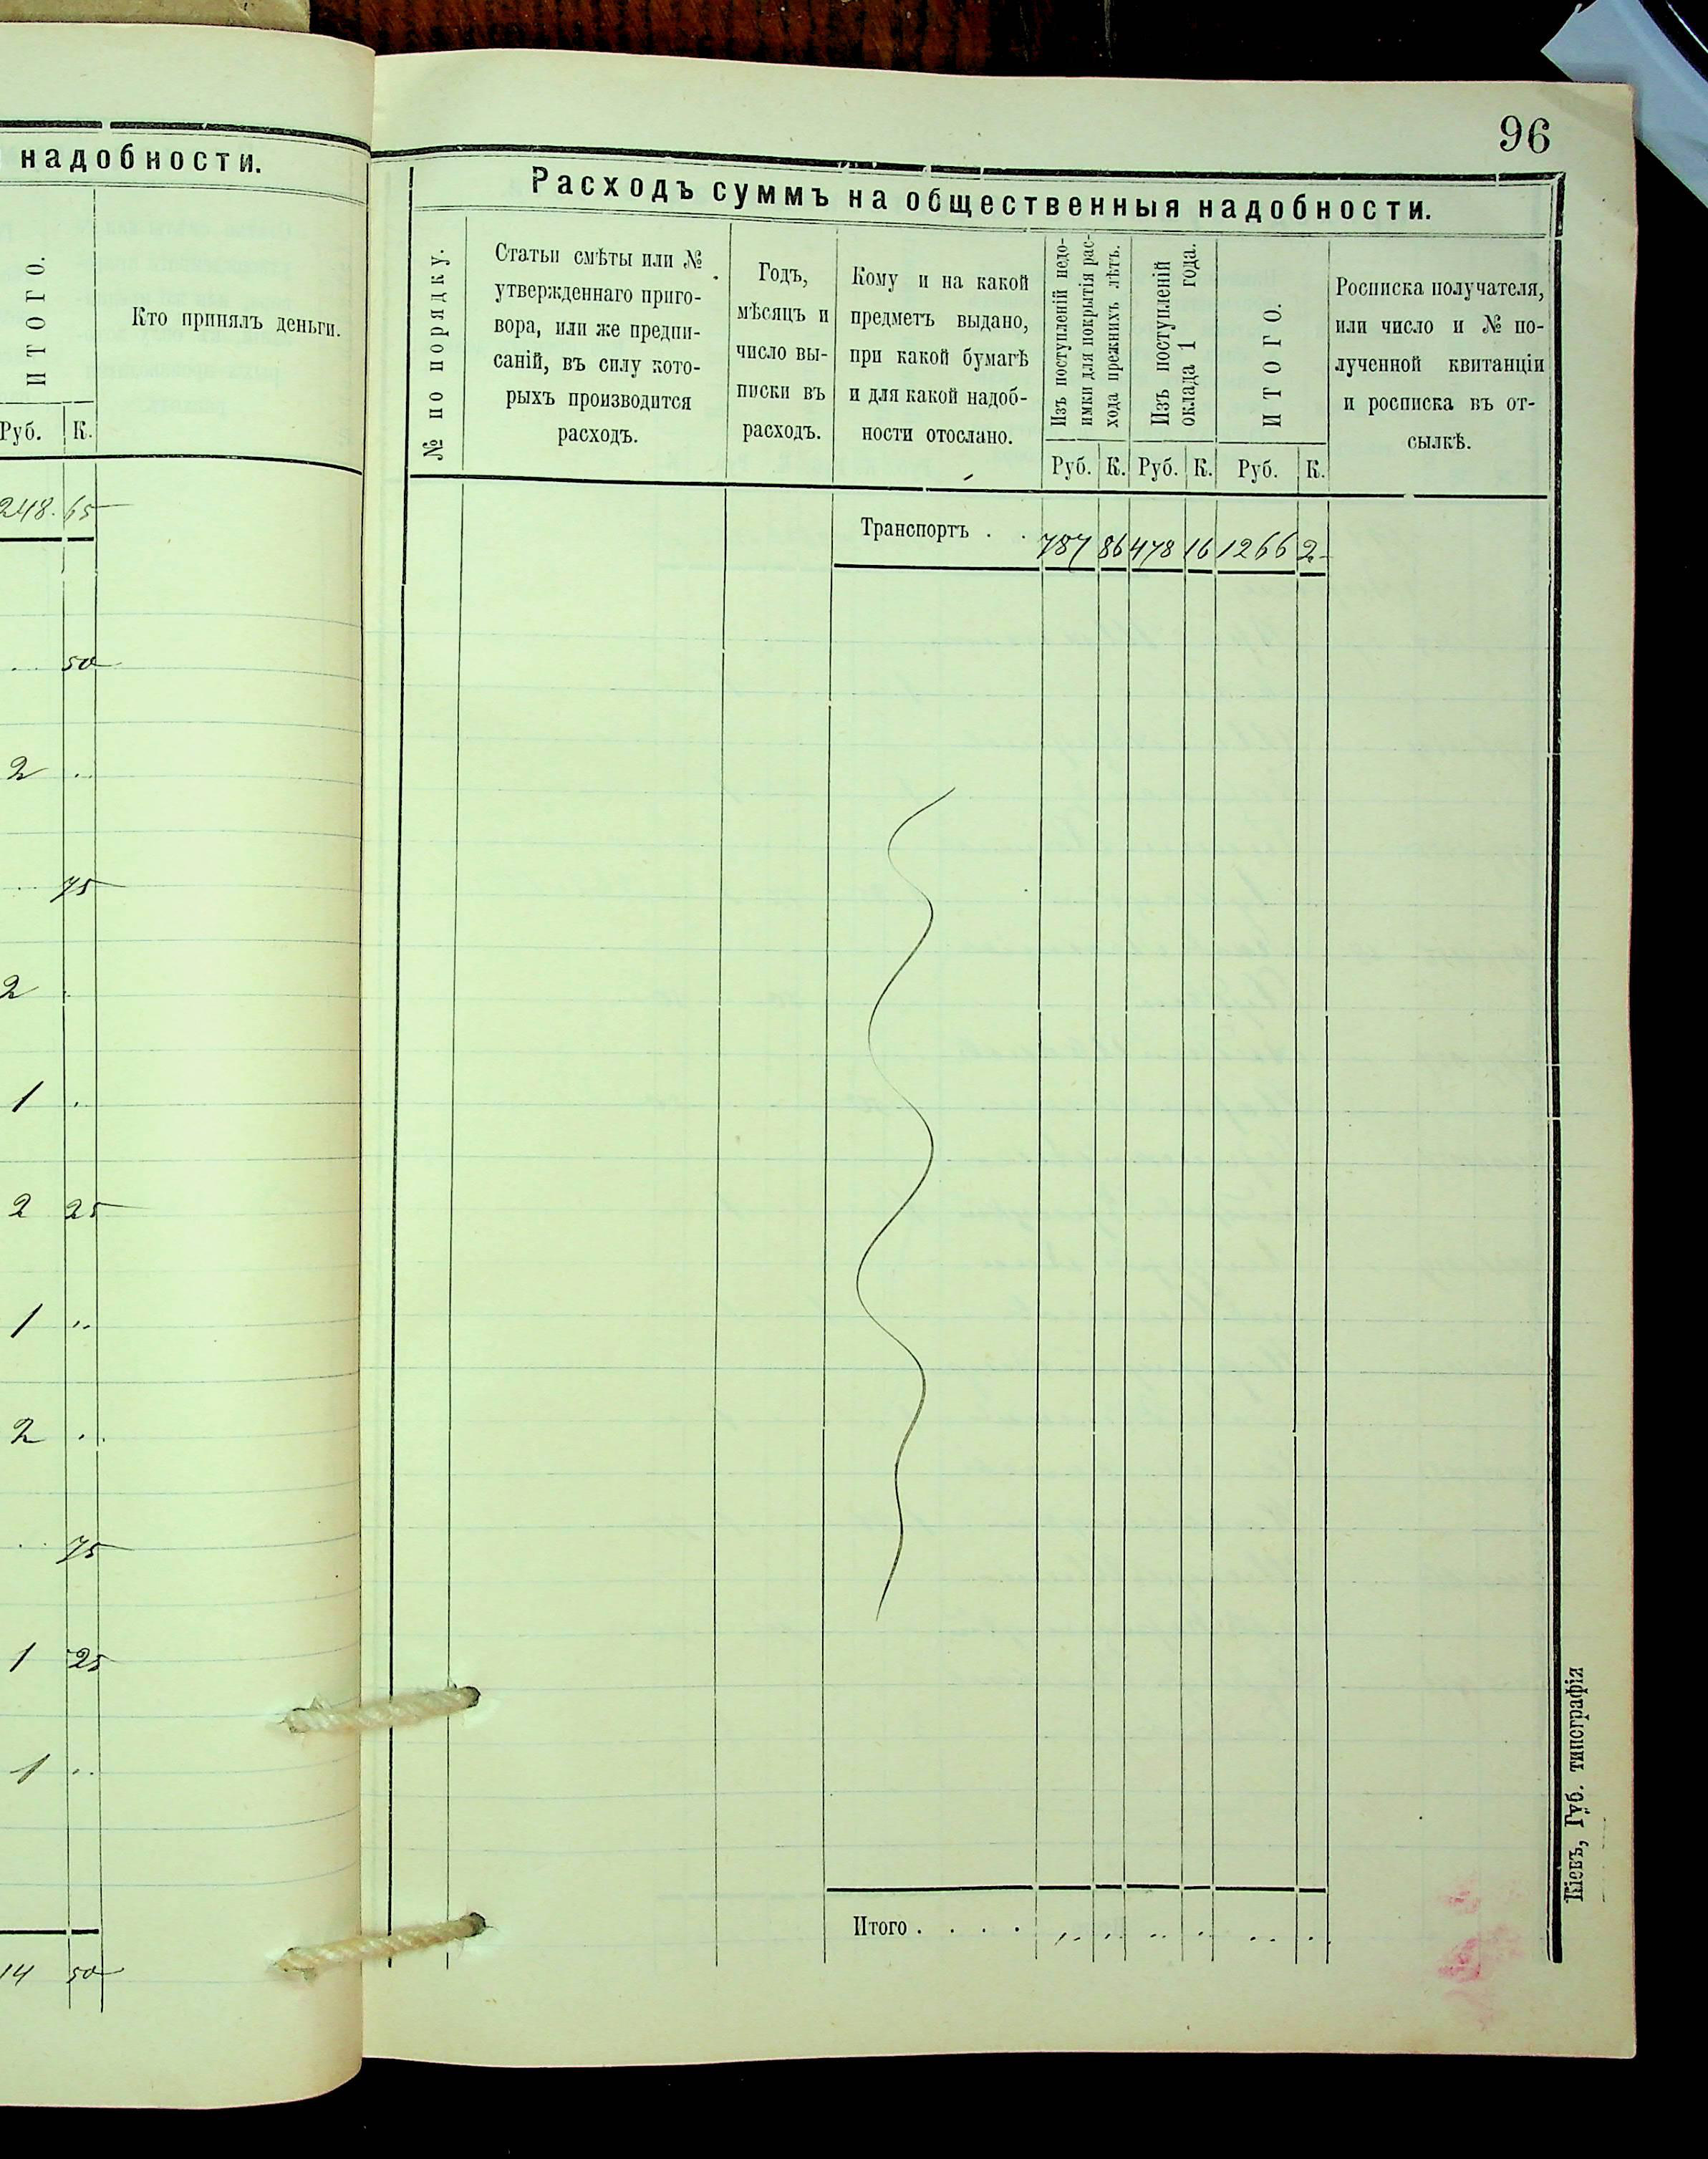 надобности.
ИТОГО.
Кто принялъ деньги.
Руб. К.
248. 65
50
2 ..
75
2 .
1 .
2 25
1 ..
2 ..
75
1 25
1 ..
14 50
96
Расходъ суммъ на общественныя надобности.
№ по порядку.
Статьи смѣты или №
утвержденнаго приго-
вора, или же предпи-
саній, въ силу кото-
рыхъ производится
расходъ.
Годъ,
мѣсяцъ и
число вы-
писки въ
расходъ.
Кому и на какой
предметъ выдано,
при какой бумагѣ
и для какой надоб-
ности отослано.
Изъ поступленій недо-
имки для покрытія рас-
хода прежнихъ лѣтъ.
Изъ поступленій
оклада 1 года.
ИТОГО.
Росписка получателя,
или число и № по-
лученной квитанціи
и росписка въ от-
сылкѣ.
Руб. К. Руб. К. Руб. К.
Транспортъ . . 787 86 478 16 1266 2
Итого . . . . ,.. .. .. .. .. ..
Кіевъ, Губ. типографія